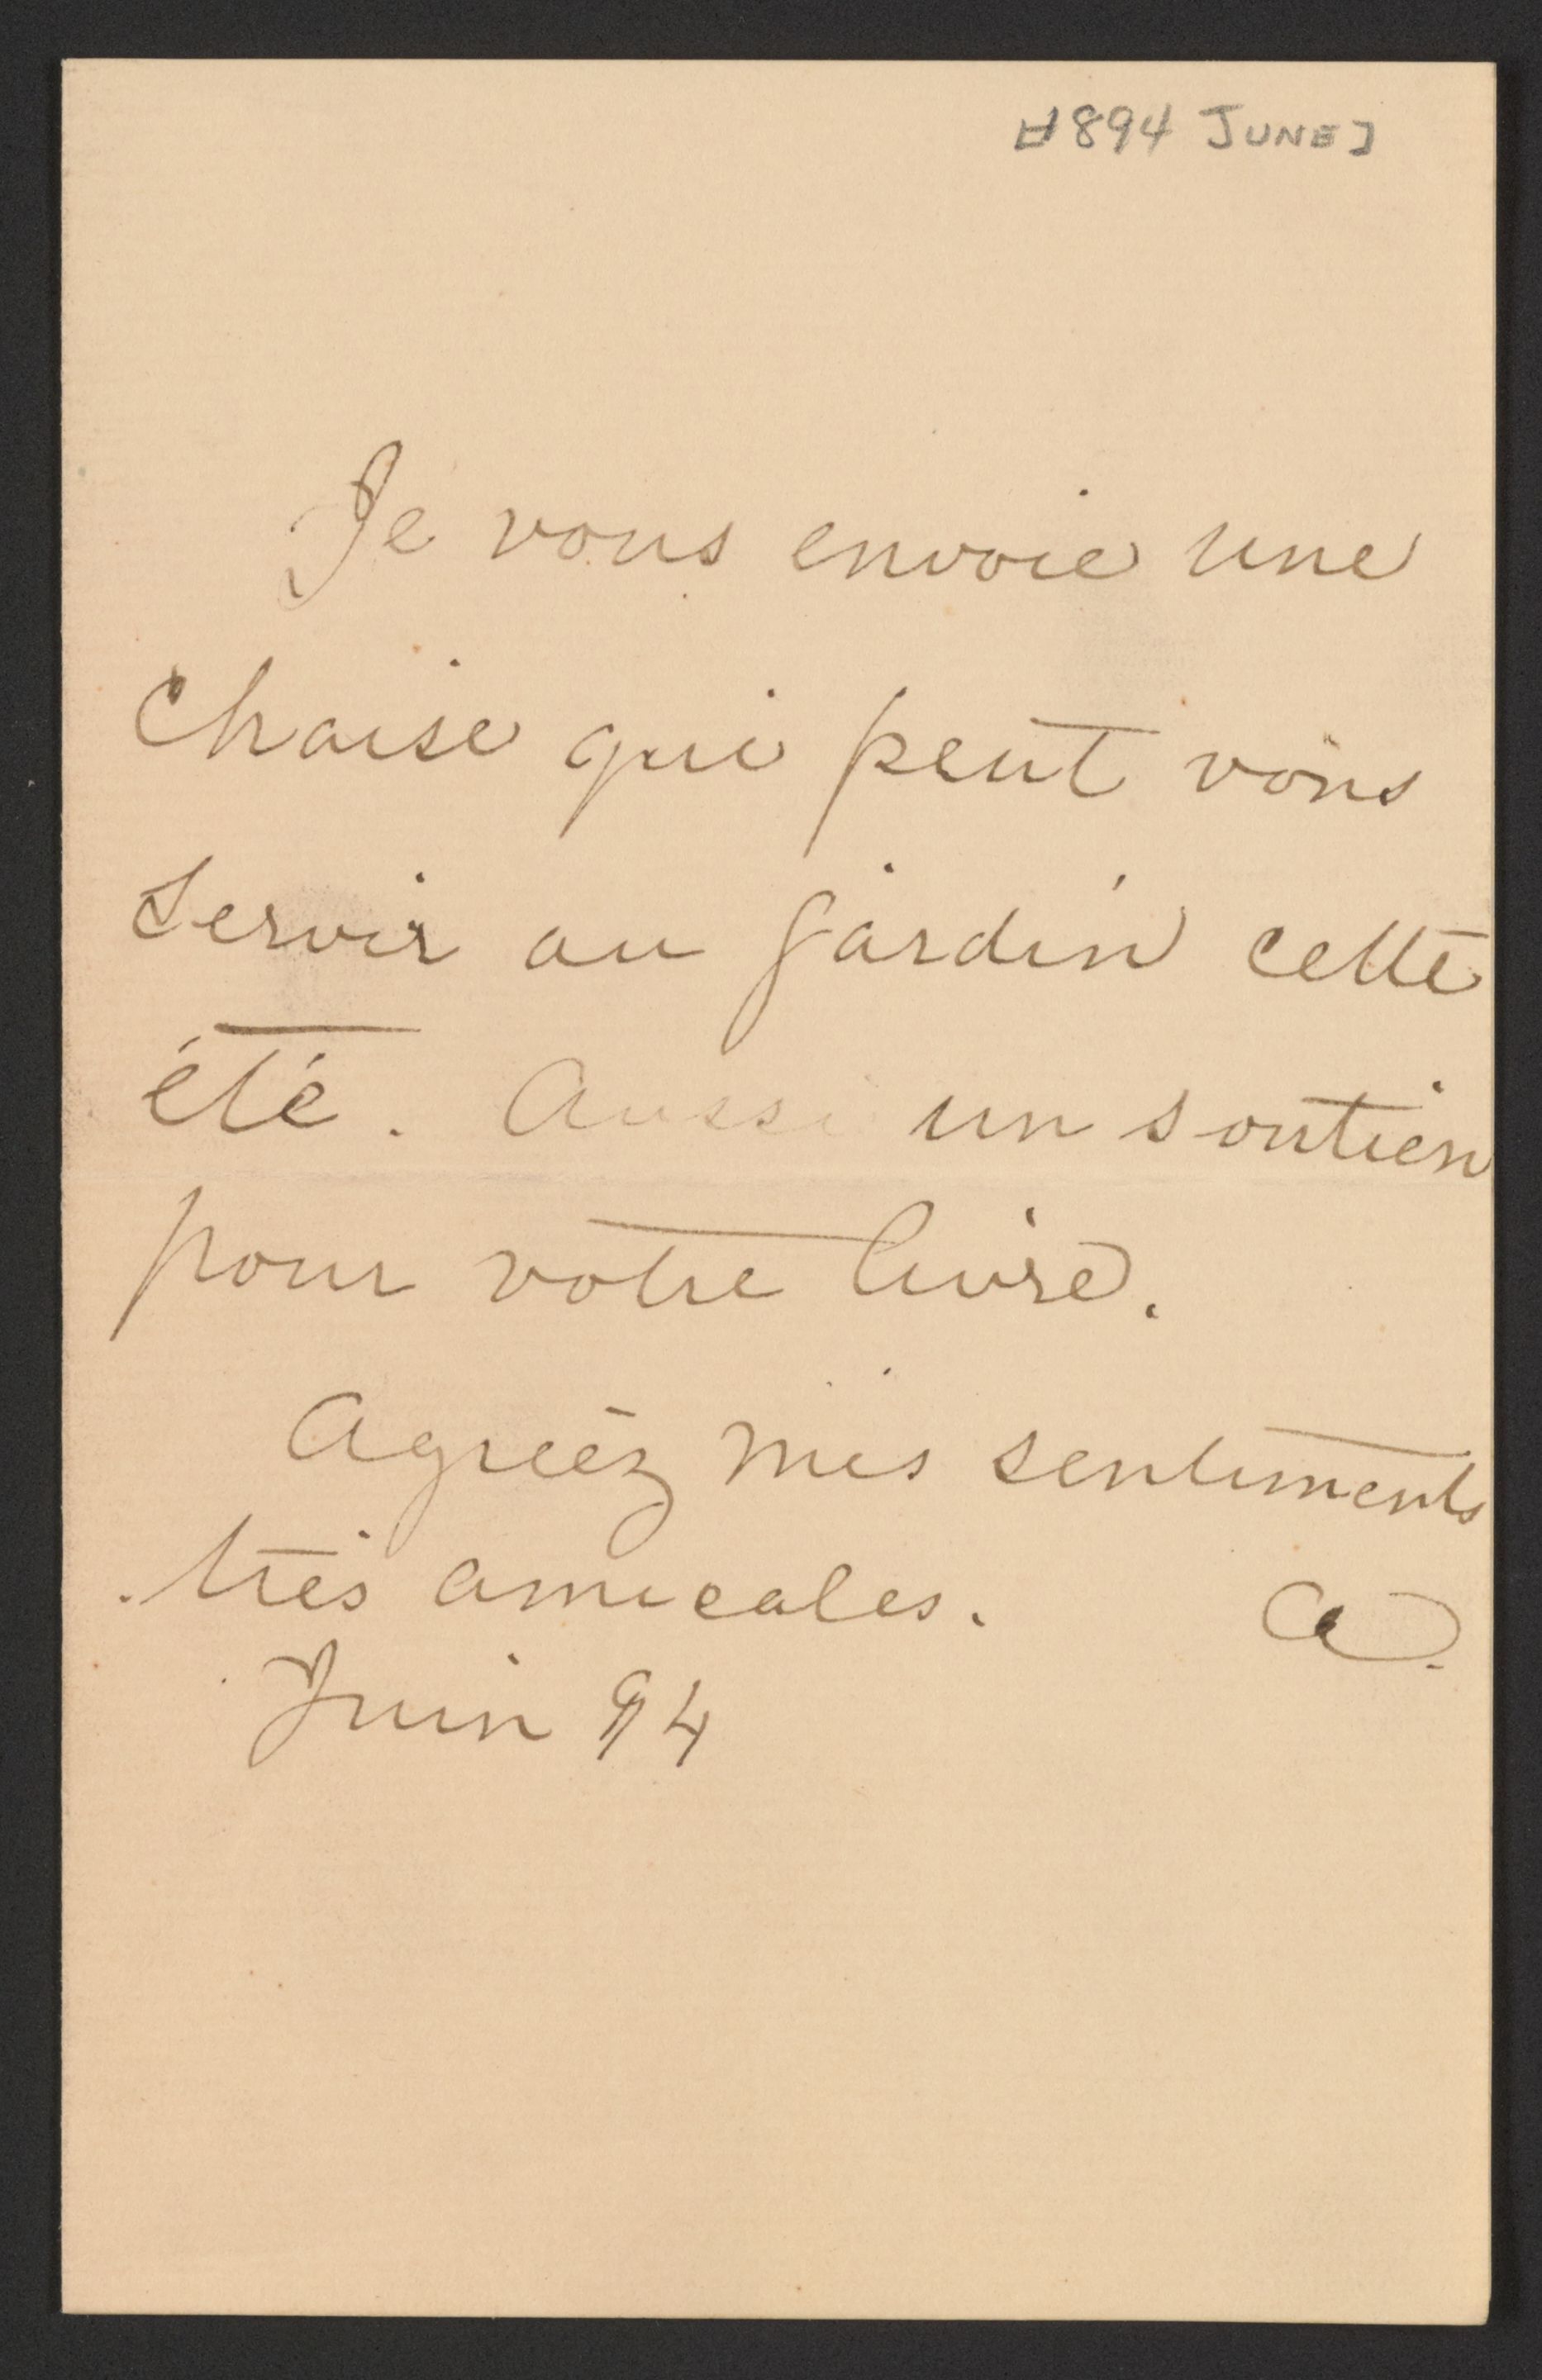 [1894 JUNE]
Je vous envoie une
chaise qui peut vous
servir au jardin cette
été. Aussi un soutien
pour votre livre.
Agréez mes sentiments
très amicales.
Juin 94